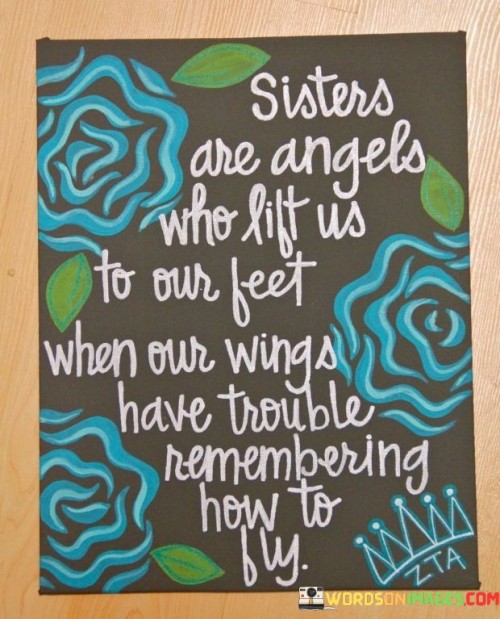 Sisters
are angels
who lift us
to our feet
when our wings
have trouble
remembering
how to
fly.
ZTA
WORDSONIMAGES.COM